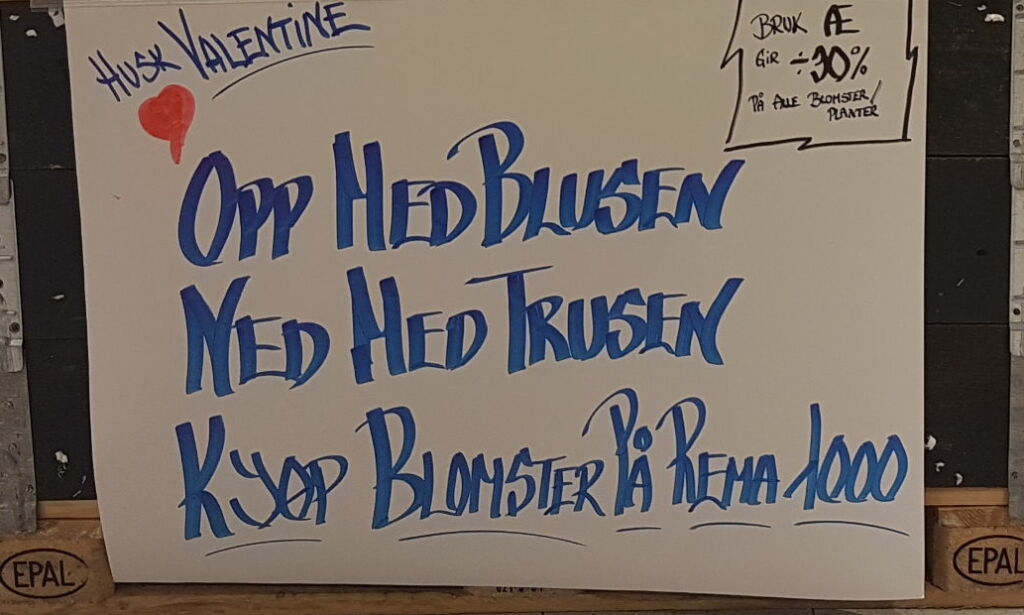 HUSK VALENTINE
BRUK Æ
GIR ÷30%
PÅ ALLE BLOMSTER/
PLANTER
OPP MED BLUSEN
NED MED TRUSEN
KJØP BLOMSTER PÅ REMA 1000
EPAL
EPAL